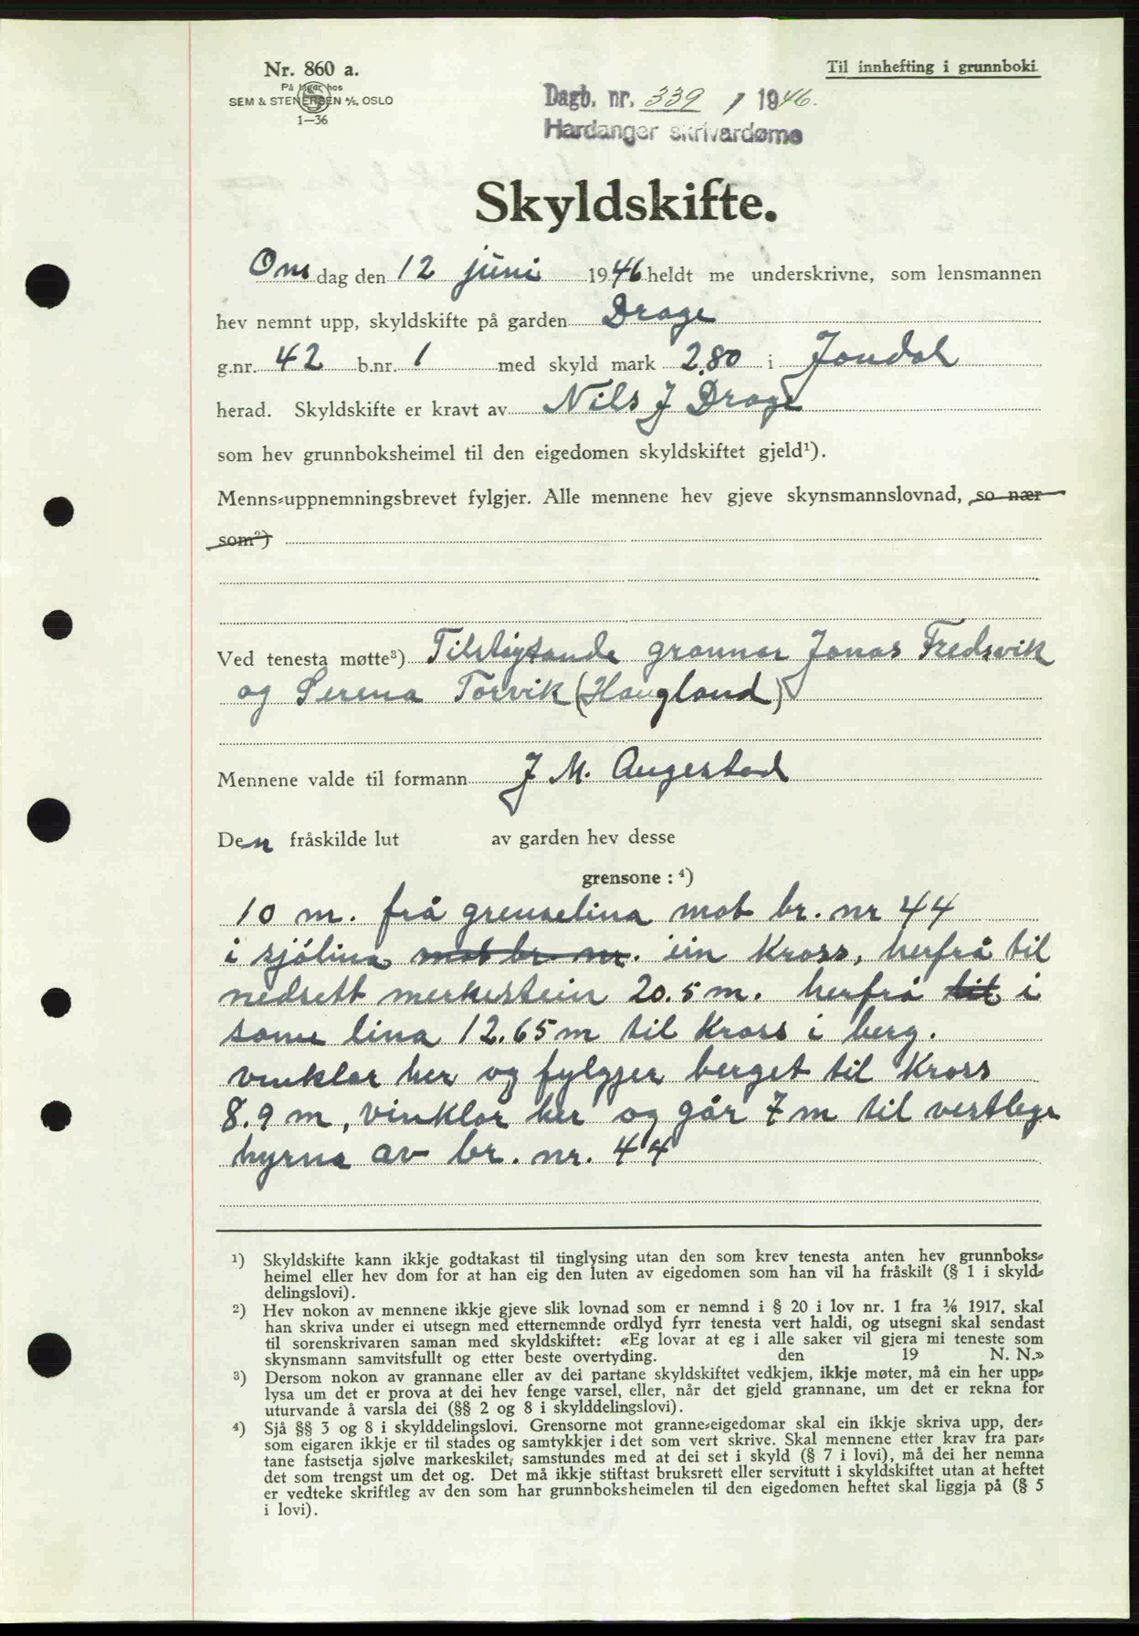 Nr. 860 a.
På lager hos
SEM & STENERSEN A/S, OSLO
1—36
Til innhefting i grunnboki
Dagb. nr. 339 / 1946.
Hardanger skrivardøme
Skyldskifte.
Onsdag den 12 juni 1946 heldt me underskrivne, som lensmannen
hev nemnt upp, skyldskifte på garden Drage
g.nr. 42 b.nr. 1 med skyld mark 2.80 i Jondal
herad. Skyldskifte er kravt av Nils J Drage
som hev grunnboksheimel til den eigedomen skyldskiftet gjeld¹).
Menns-uppnemningsbrevet fylgjer. Alle mennene hev gjeve skynsmannslovnad, so nær
som²)
Ved tenesta møtte³) Tilstøytande grannar Jonas Fredsvik
og Serena Torvik (Haugland)
Mennene valde til formann J M. Augestad
Den fråskilde lut av garden hev desse
grensone : ⁴)
10 m. frå grenselina mot br. nr 44
i sjölina mot br. nr. i ein Kross, herfrå til
nedsett merkestein 20.5 m. herfrå til i
same lina 12.65 m til Kross i berg.
vinklar her og fylgjer berget til Kross
8.9 m, vinklar her og går 7 m til vestlege
hyrna av br. nr. 44
¹) Skyldskifte kann ikkje godtakast til tinglysing utan den som krev tenesta anten hev grunnboks-
heimel eller hev dom for at han eig den luten av eigedomen som han vil ha fråskilt (§ 1 i skyld-
delingslovi).
²) Hev nokon av mennene ikkje gjeve slik lovnad som er nemnd i § 20 i lov nr. 1 fra 1/6 1917, skal
han skriva under ei utsegn med etternemnde ordlyd fyrr tenesta vert haldi, og utsegni skal sendast
til sorenskrivaren saman med skyldskiftet: «Eg lovar at eg i alle saker vil gjera mi teneste som
skynsmann samvitsfullt og etter beste overtyding. den 19 N. N.»
³) Dersom nokon av grannane eller av dei partane skyldskiftet vedkjem, ikkje møter, må ein her upp-
lysa um det er prova at dei hev fenge varsel, eller, når det gjeld grannane, um det er rekna for
uturvande å varsla dei (§§ 2 og 8 i skylddelingslovi).
⁴) Sjå §§ 3 og 8 i skylddelingslovi. Grensorne mot granne-eigedomar skal ein ikkje skriva upp, der-
som eigaren ikkje er til stades og samtykkjer i det som vert skrive. Skal mennene etter krav fra par-
tane fastsetja sjølve markeskilet, samstundes med at dei set i skyld (§ 7 i lovi), må dei her nemna
det som trengst um det og. Det må ikkje stiftast bruksrett eller servitutt i skyldskiftet utan at heftet
er vedteke skriftleg av den som har grunnboksheimelen til den eigedomen heftet skal liggja på (§ 5
i lovi).